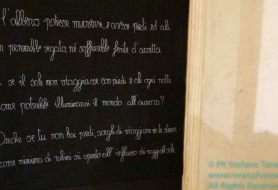 l'albero potesse muoversi, e avesse piedi ed ali
penerebbe segato, né soffrirebbe ferite d'accetta
se il sole non viaggiasse con piedi e ali ogni notte
come potrebbe illuminarsi il mondo all'aurora?
Anche se tu non hai piedi, scegli di viaggiare in te stesso
come miniera di rubini sii aperto all'influsso dei raggi del sole
© Ph Stefano
All Rights